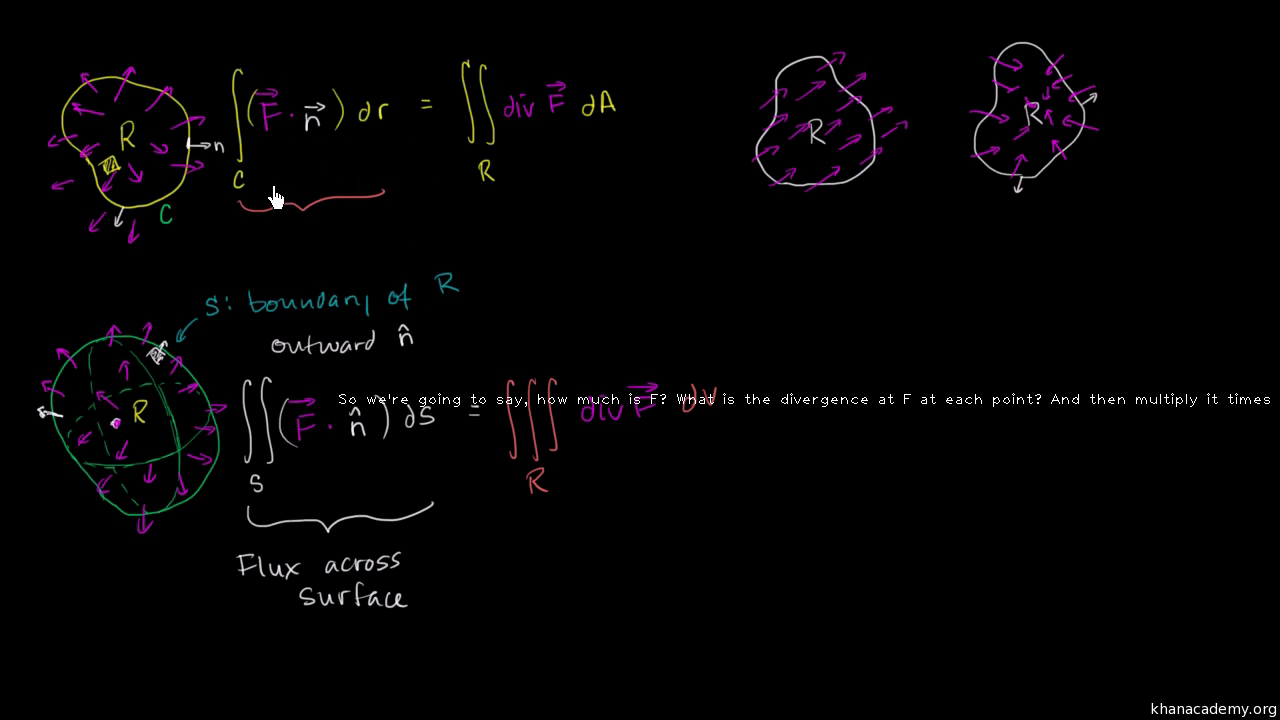 R
n
C
∫ (F⃗ · n⃗) dr = ∬ div F⃗ dA
C R
R
R
S: boundary of R
outward n̂
R
∬ (F⃗ · n̂) dS = ∭ div F⃗ dV
S R
So we're going to say, how much is F? What is the divergence at F at each point? And then multiply it times
Flux across
surface
khanacademy.org